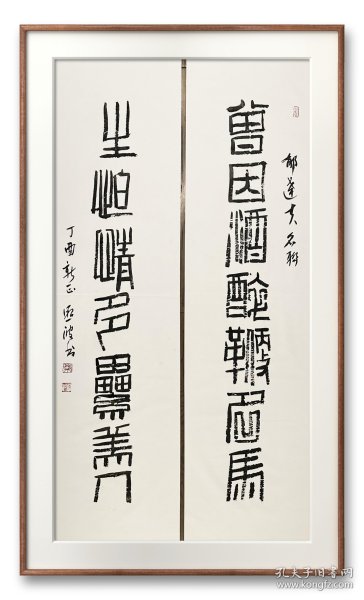 郁達夫名聯
曾因酒醉鞭名馬
生怕情多纍美人
丁酉新正
孔夫子旧书网
www.kongfz.com